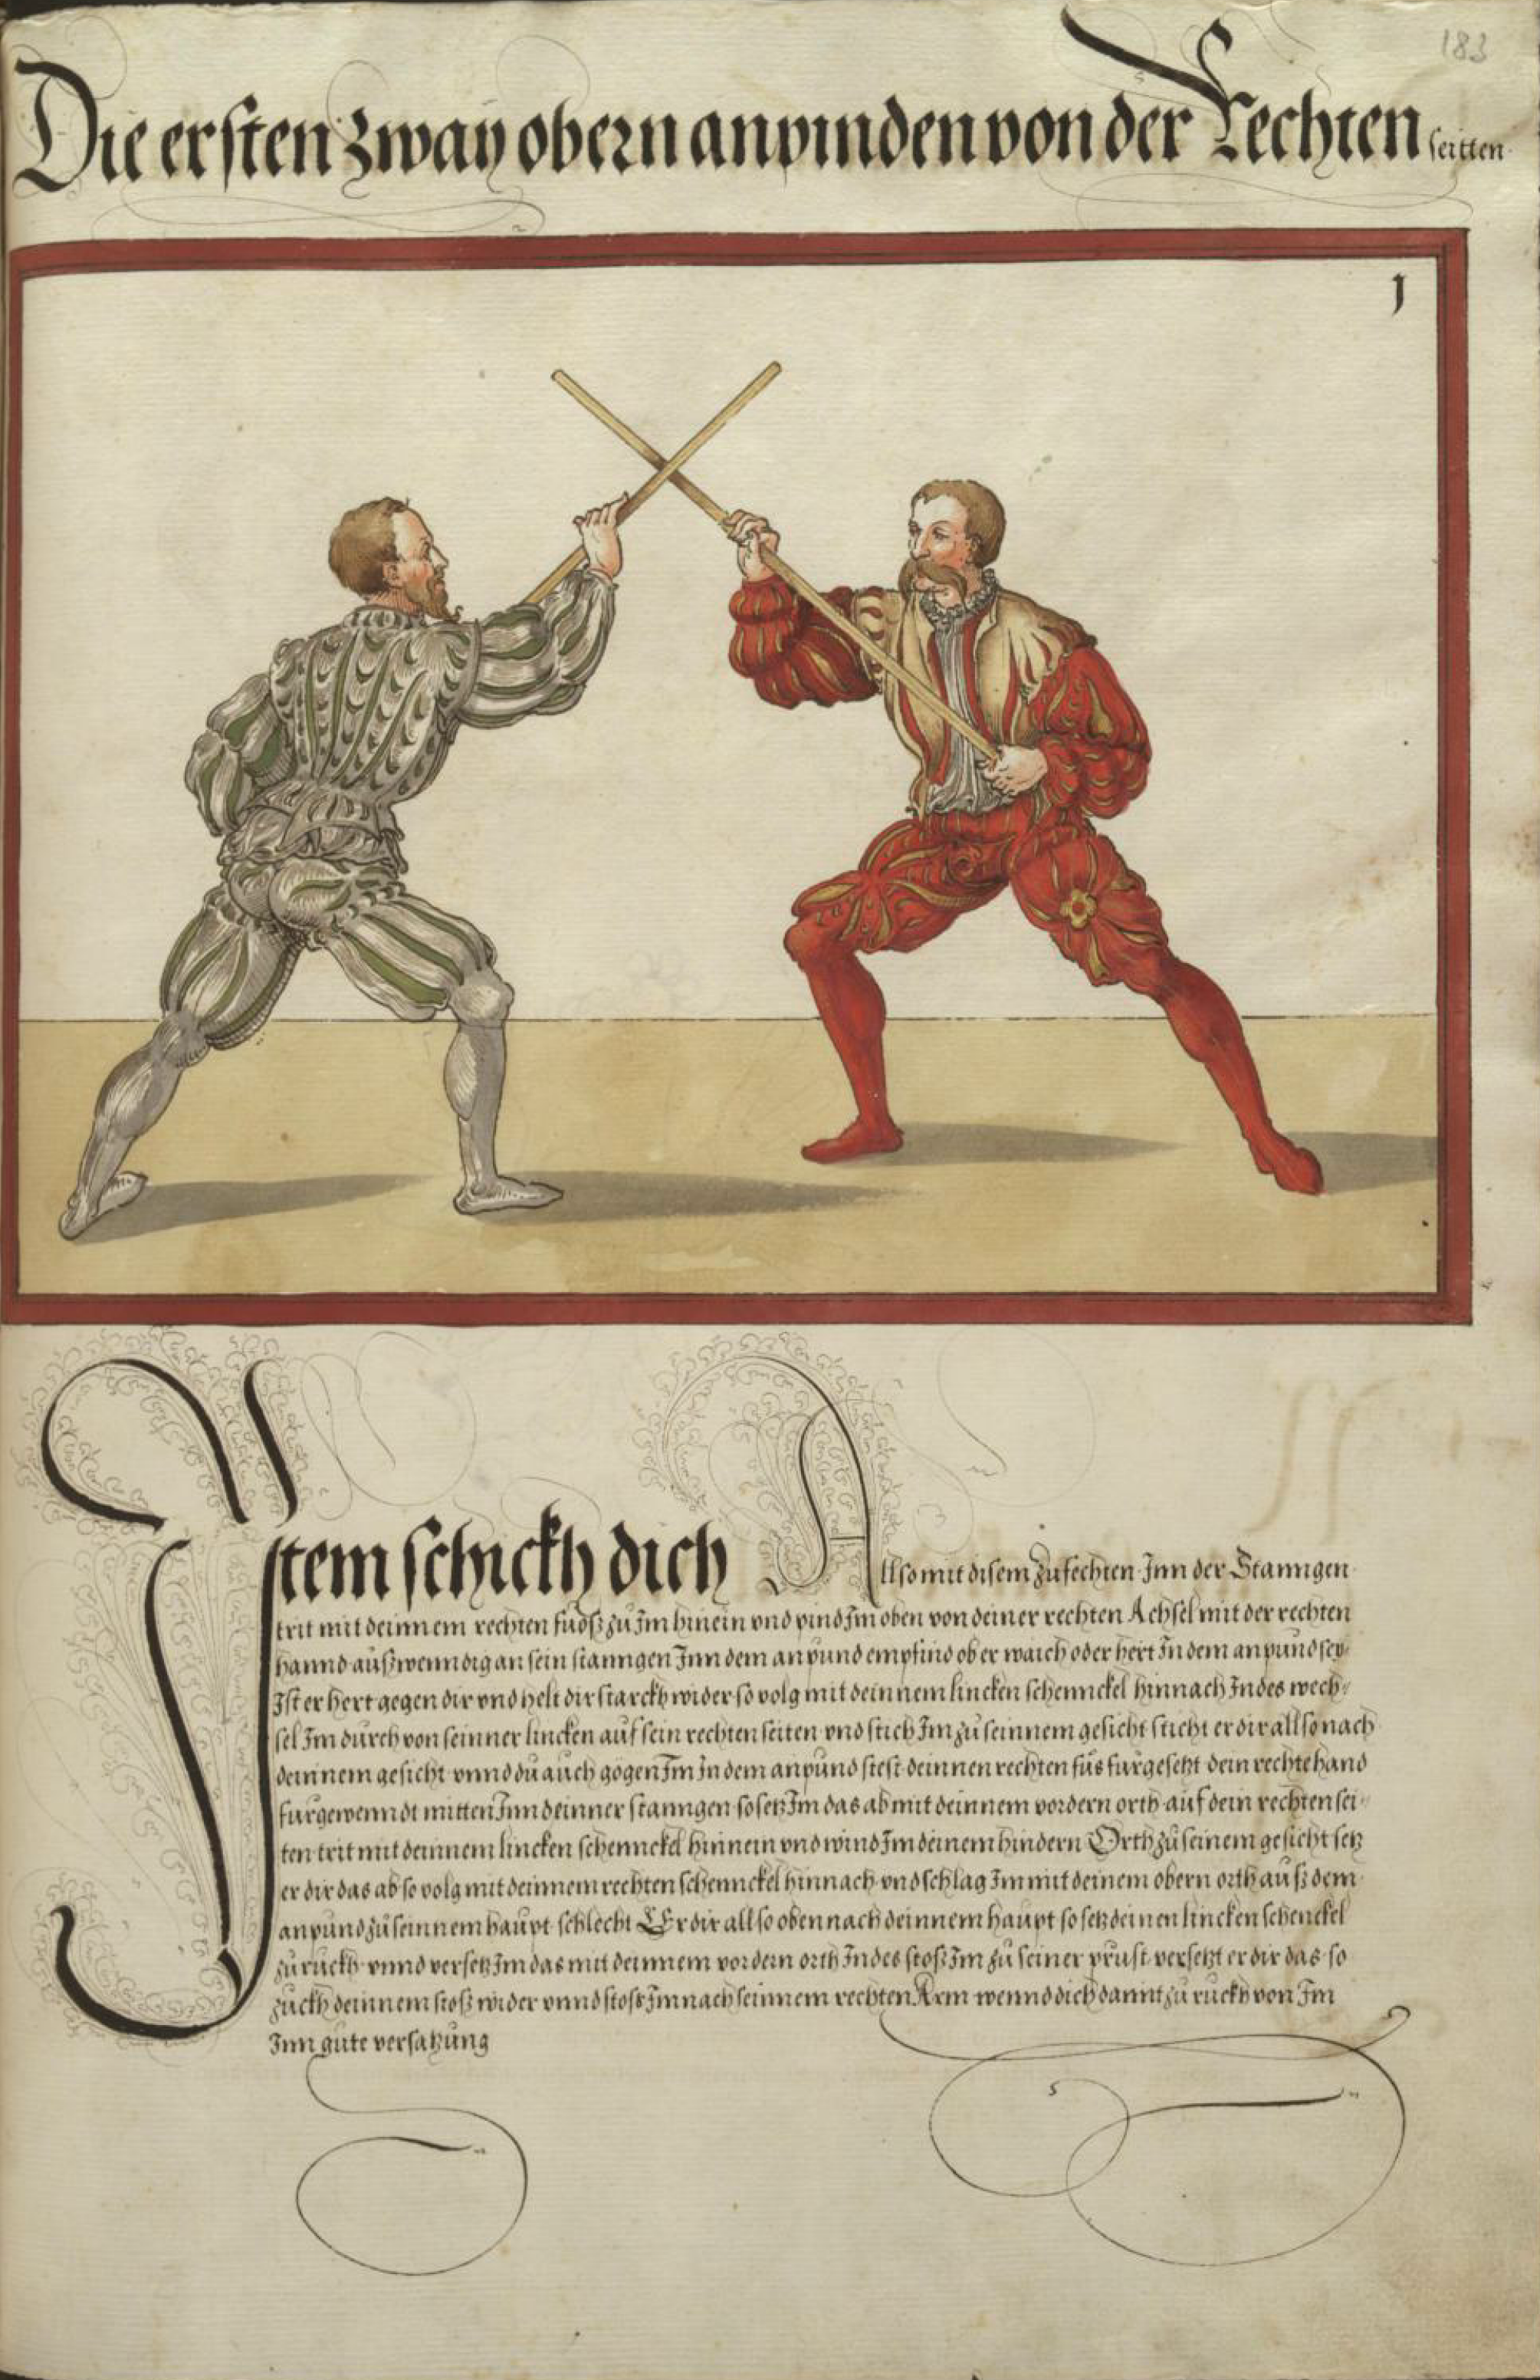 183
Die ersten zway obern anpinden von der Rechten seitten
1
Item schickh dich Allso mit disem zufechten Inn der Stanngen
trit mit deinnem rechten fuoß zu Im hinein vnd pind Im oben von deiner rechten Achsel mit der rechten
hannd außwenndig an sein stanngen Inn dem anpund empfind ob er waich oder hert In dem anpund sey
Ist er hert gegen dir vnd helt dir starckh wider so volg mit deinnem lincken schennckel hinnach Indes wech-
sel Im durch von seinner lincken auf sein rechten seiten vnd stich Im zu seinnem gesicht sticht er dir allso nach
deinnem gesicht vnnd du auch gögen Im In dem anpund stest deinnen rechten fuß furgesetzt dein rechte hand
furgewenndt mitten Inn deinner stanngen so setz Im das ab mit deinnem vordern orth auf dein rechten sei-
ten trit mit deinnem lincken schennckel hinnein vnd wind Im deinem hindern Orth zu seinem gesicht setz
er dir das ab so volg mit deinnem rechten schennckel hinnach vnd schlag Im mit deinem obern orth auß dem
anpund zu seinnem haupt schlecht Er dir allso oben nach deinnem haupt so setz deinen lincken schenckel
zu ruckh vnnd versetz Im das mit deinnem vordern orth Indes stoß Im zu seiner prust versetzt er dir das so
zuckh deinnem stoß wider vnnd stoß Im nach seinnem rechten Arm wennd dich dannt zu ruckh von Im
Inn gute versatzung